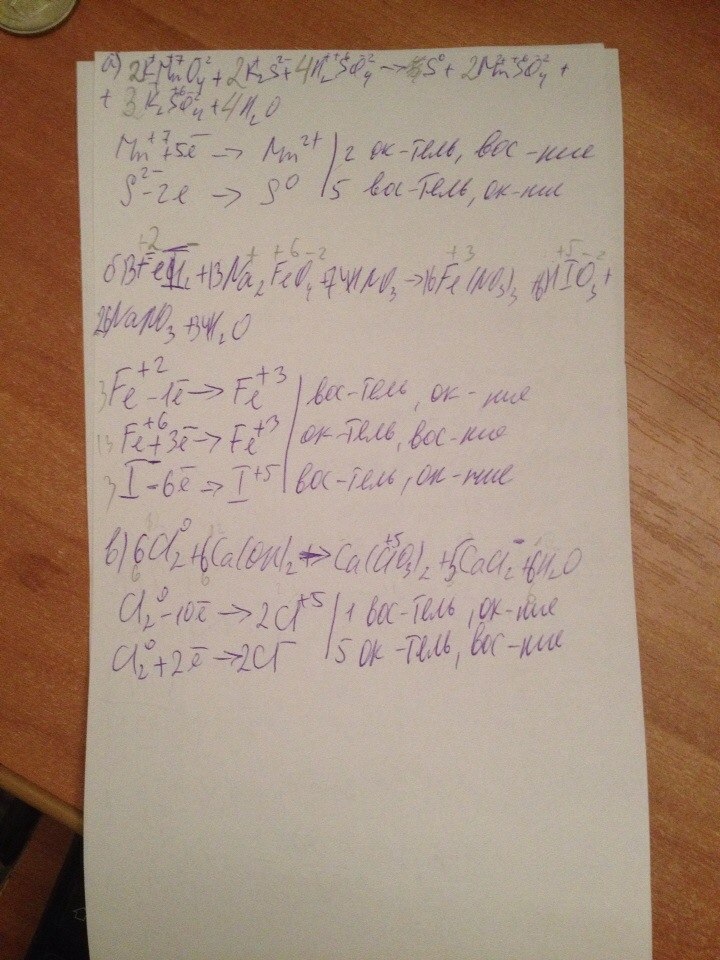 а) 2KMnO₄ + 2K₂S + 4H₂SO₄ → S⁰ + 2MnSO₄ +
+ 3K₂SO₄ + 4H₂O
Mn⁺⁷ + 5ē → Mn²⁺ | 2 ок-тель, вос-ние
S²⁻ - 2e → S⁰ | 5 вос-тель, ок-ние
б) 13FeI₂ + 13Na₂FeO₄ + 74HNO₃ → 16Fe(NO₃)₃ HIO₃ +
26NaNO₃ + 34H₂O
3 Fe⁺² - 1ē → Fe⁺³ | вос-тель, ок-ние
13 Fe⁺⁶ + 3ē → Fe⁺³ | ок-тель, вос-ние
3 I⁻ - 6ē → I⁺⁵ | вос-тель, ок-ние
в) 6Cl₂⁰ + 6Ca(OH)₂ → Ca(ClO₃)₂ + 5CaCl₂ + 6H₂O
Cl₂⁰ - 10ē → 2Cl⁺⁵ | 1 вос-тель, ок-ние
Cl₂⁰ + 2ē → 2Cl⁻ | 5 ок-тель, вос-ние